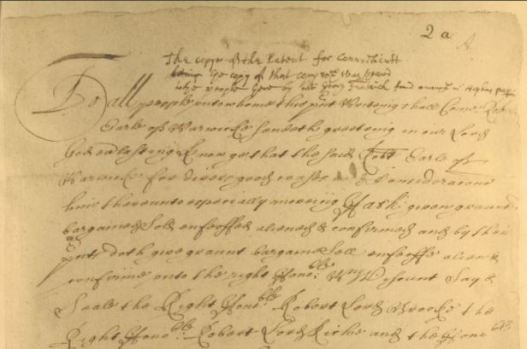 2a
The copye of the Patent for Connecticutt
being the copy of that
people
To all people unto whome this prsent Writeing shall Come Robert
Earle of Warwicke sendeth greeteing in our Lord
God everlasting Know yee that the said Robt Earle of
Warwicke for divers good causes and Consideracons
him thereunto especially moveing Hath given graunted
bargained Sold enfeoffed aliened & confirmed and by these
prsents doth give graunt bargaine Sell enfeoffe aliene &
confirme unto the right Honoble Wm Viscount Say &
Seale the Right Honoble Robert Lord Brooke the
Right Honoble Robert Lord Riche and the Honoble